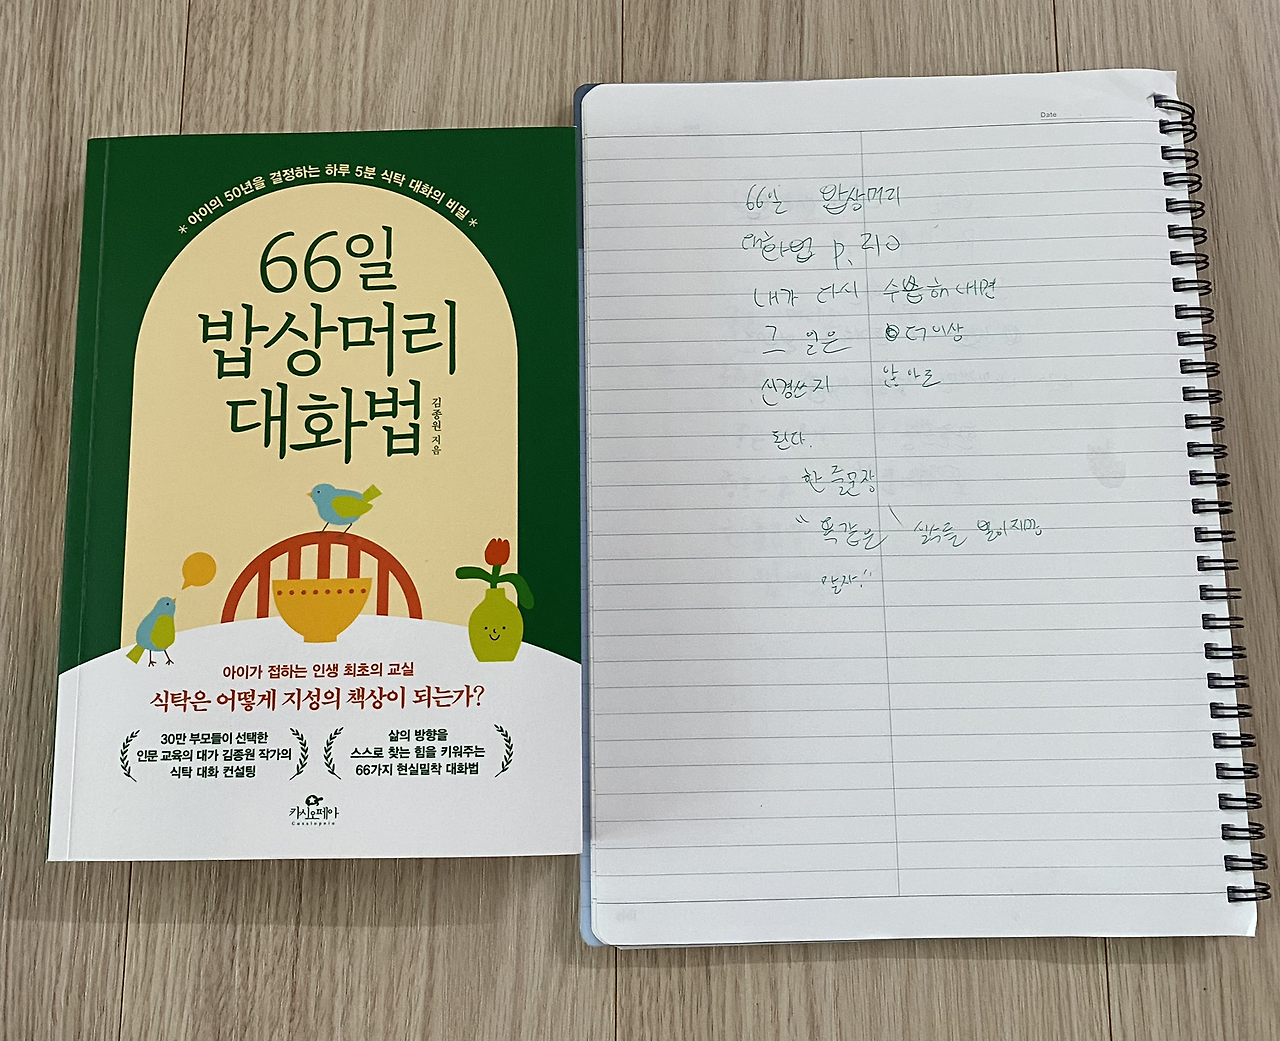 *아이의 50년을 결정하는 하루 5분 식탁 대화의 비밀*
66일
밥상머리
대화법
김종원 지음
아이가 접하는 인생 최초의 교실
식탁은 어떻게 지성의 책상이 되는가?
30만 부모들이 선택한
인문 교육의 대가 김종원 작가의
식탁 대화 컨설팅
삶의 방향을
스스로 찾는 힘을 키워주는
66가지 현실밀착 대화법
카시오페아
Cassiopeia
Date
66일 밥상머리
대화법 p. 210
내가 다시 수습해내면
그 일은 더이상
신경쓰지 않아도
된다.
한 줄문장
"똑같은 실수를 벌이지만
말자."